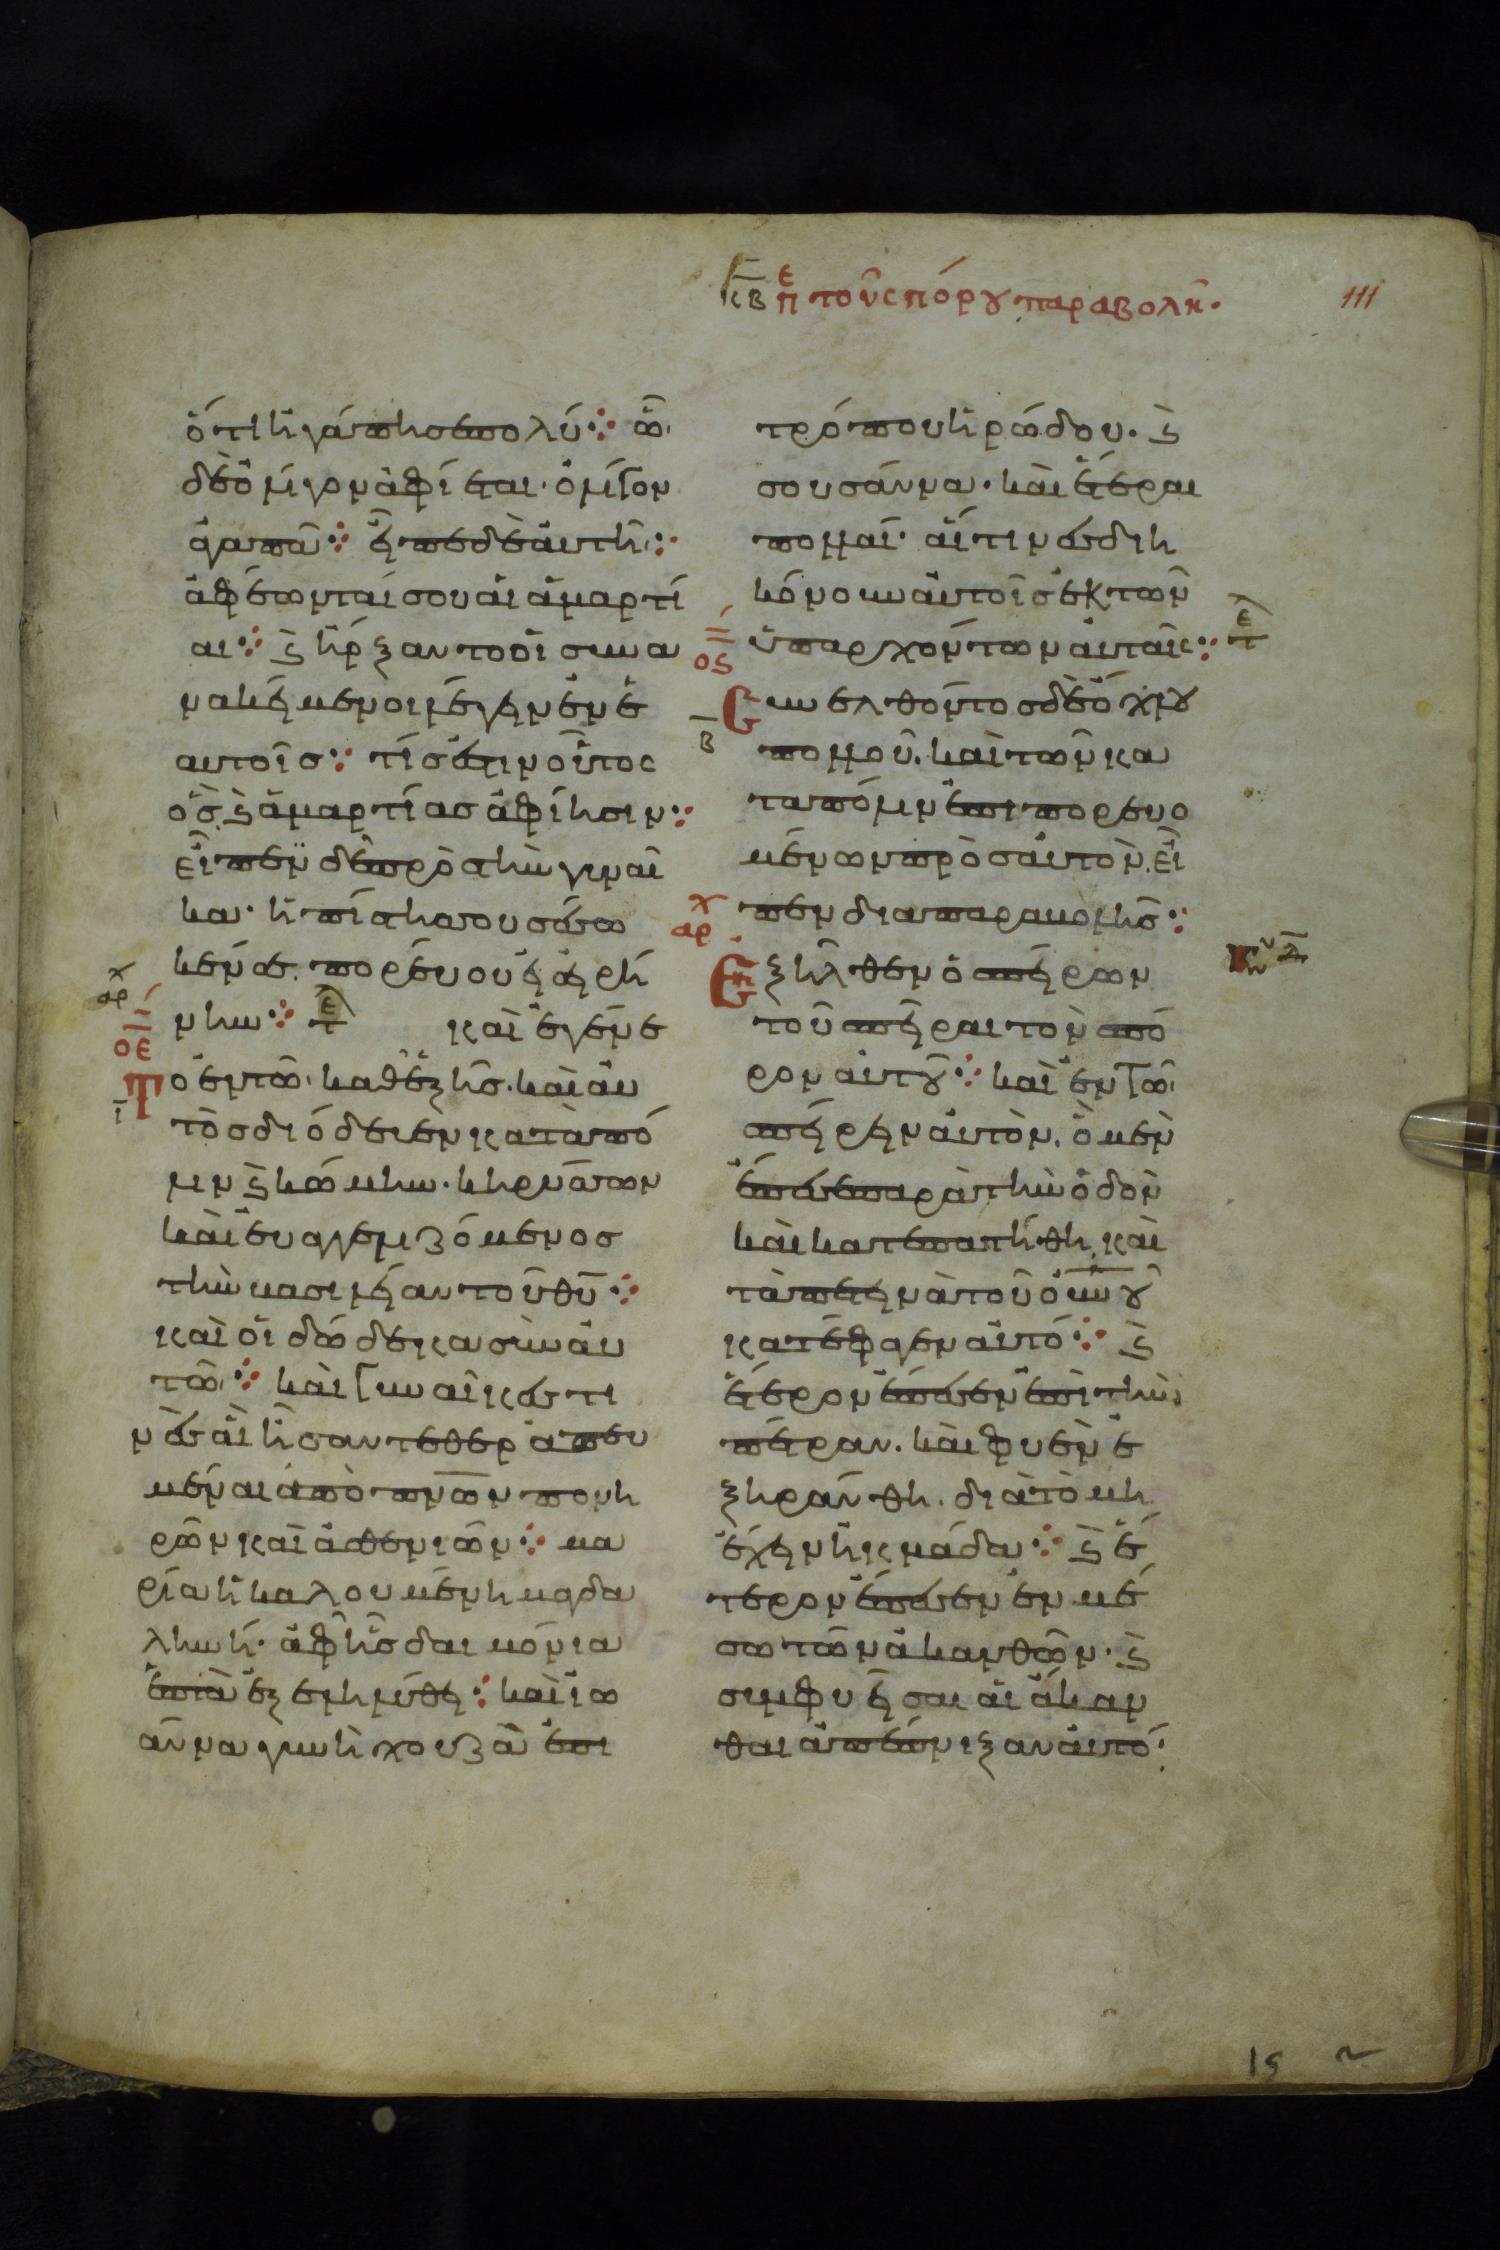 κβ πε τοῦ σπόρου παραβολῆ·
111
ὅτι ἠγάπησε πολύ· ὧ
δὲ ὀλίγον ἀφίεται· ὀλίγον
ἀγαπᾶ· εἶπε δὲ αὐτῆ·
ἀφέωνταί σου αἱ ἁμαρτί
αι· ϗ ἤρξαντο οἱ συνα
νακείμενοι λέγειν ἐν ἑ
αυτοῖς· τίς ἐστιν οὗτος
ὃς ϗ ἁμαρτίας ἀφίησιν·
εἶπεν δὲ πρὸς τὴν γυναῖ
κα· ἡ πίστις σου σέσω
κέν σε. πορεύου εἰς εἰρή
αρχ
νην· τε καὶ ἐγένε
οε
το ἐν τῶ καθεξῆς. καὶ αὐ
ι
τὸς διόδευεν κατὰ πό
λιν ϗ κώμην· κηρύσσων
καὶ εὐαγγελιζόμενος
τὴν βασιλείαν τοῦ θυ·
καὶ οἱ δώδεκα σὺν αὐ
τῶ· καὶ γυναῖκές τι
νὲς αἳ ἦσαν τεθεραπευ
μέναι ἀπὸ πνων πονη
ρῶν καὶ ἀσθενειῶν· μα
ρία ἡ καλουμένη μαγδα
ληνή· ἀφ ἧς δαιμόνια
ἑπτὰ ἐξεληλύθει· καὶ ἰω
άννα γυνὴ χουζᾶ ἐπι
τρόπου ἡρώδου· ϗ
σουσάννα· καὶ ἕτεραι
πολλαί· αἵτινες διη
κόνουν αὐτοῖς ἐκ τῶν
ος
ὑπαρχόντων αὐταῖς· τε
Συνελθόντος δὲ ὄχλου
β
πολλοῦ. καὶ τῶν κα
τα πόλιν ἐπιπορευο
μένων πρὸς αὐτὸν. εἶ
πεν δια παραβολῆς·
αρχ
Ἐξῆλθεν ὁ σπείρων
τοῦ σπεῖραι τὸν σπό
ρον αὐτοῦ· καὶ ἐν τῶ
σπείρειν αὐτὸν. ὃ μὲν
ἔπεσε παρὰ τὴν ὁδὸν
καὶ κατεπατήθη, καὶ
τὰ πετεινὰ τοῦ ουνου
κατέφαγεν αὐτό· ϗ
ἕτερον ἔπεσεν ἐπὶ τὴν
πέτραν. καὶ φυὲν ἐ
ξηράνθη. διὰ τὸ μὴ
ἔχειν ἰκμάδα· ϗ ἕ
τερον ἔπεσεν ἐν μέ
σω τῶν ἀκανθῶν· ϗ
συμφυεῖσαι αἱ ἄκαν
θαι ἀπέπνιξαν αὐτό·